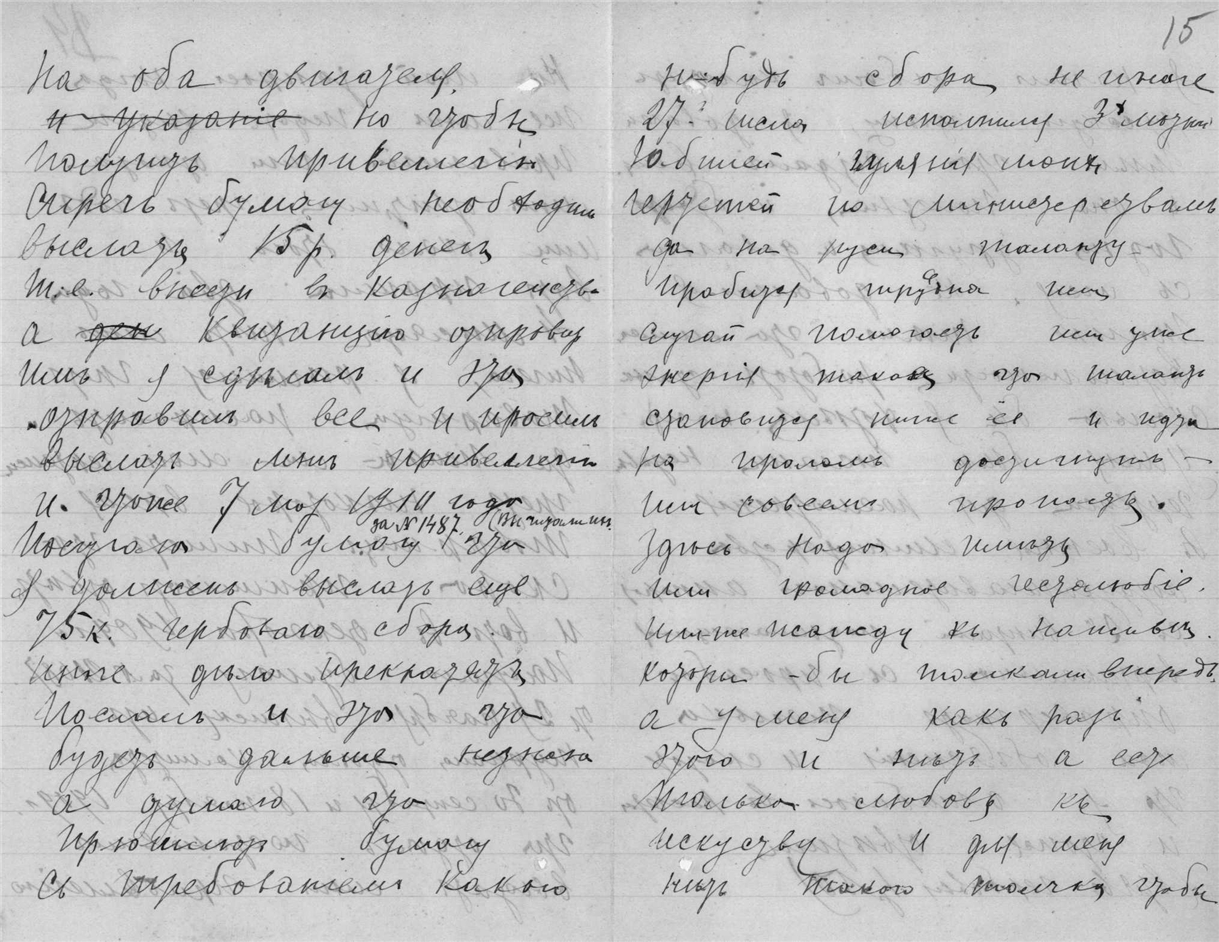 на оба двигателя.
и указание но чтобы
Получить привеллегiю
Сиречь бумагу необходим
выслать 15 р. денег
т.е. внести в казначейств.
а ден квитанцiю отправит
имъ я сдѣлалъ и это
отправилъ все и просилъ
выслать мнѣ привеллегiю
и. тоже 7 мая 1911 года
за № 1487.
Получаю бумагу что
я долженъ выслать еще
75 к. гербоваго сбора.
иначе дѣло прекратятъ
Послалъ и это что
будетъ дальше незнаю
а думаю что
пришлютъ бумагу
съ требованiемъ какого
15
нибудь сбора не иначе
27го числа исполнился 3х
Юбилей гулянiя моихъ
чертежей по министерствамъ
да на руси таланту
пробится трудна или
случай помогаетъ или уже
энергiя такая что талантъ
становится ниже её и идти
на проломъ достигнуть —
или совсемъ пропасть.
Здѣсь надо имѣть
или громадное честолюбiе.
или-же жажду къ наживи.
которы -бы толкали впередъ.
а у меня какъ разъ
этого и нѣтъ а есть
только любовь къ
искуству и для меня
нѣтъ такого толчка чтобы